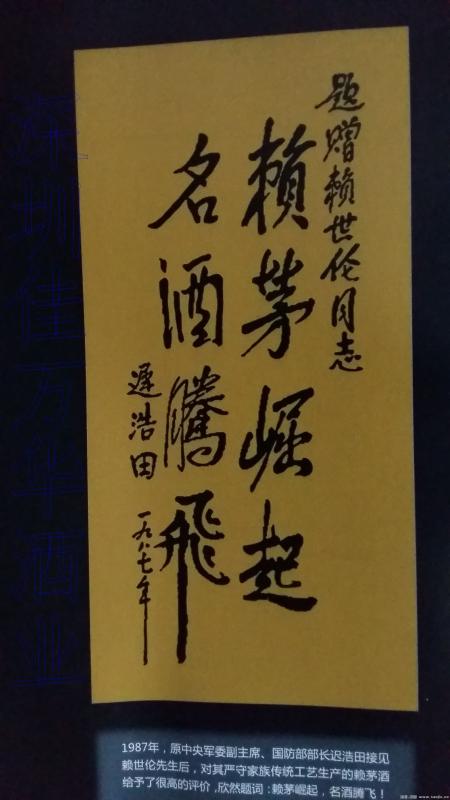 题赠赖世伦同志
賴茅崛起
名酒騰飛
遲浩田
一九八七年
深圳佳万华酒业
1987年，原中央军委副主席、国防部部长迟浩田接见
赖世伦先生后，对其严守家族传统工艺生产的赖茅酒
给予了很高的评价，欣然题词：赖茅崛起，名酒腾飞！